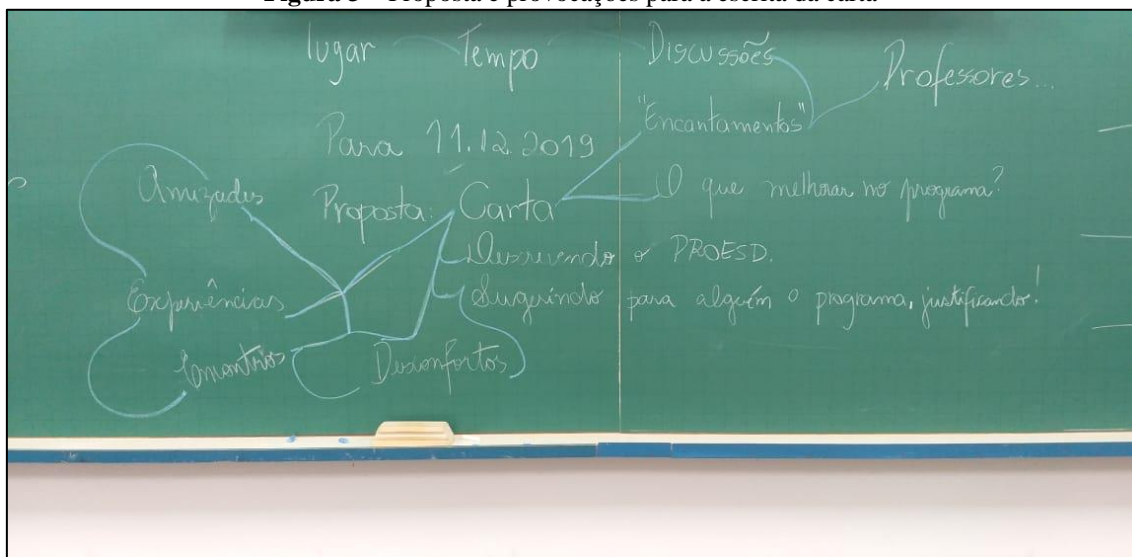 lugar Tempo Discussões Professores...
"Encantamentos"
Para 11.12.2019
Amizades Proposta: Carta O que melhorar no programa?
Descrevendo o PROESD.
Experiências Sugerindo para alguém o programa, justificando!
Encontros Desconfortos